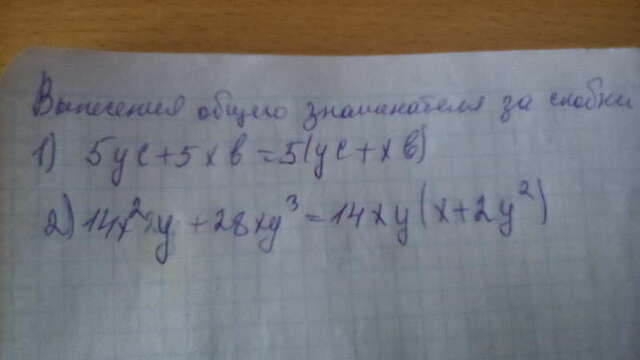 Вынесения общего знаменателя за скобки
1) 5yc+5xb=5(yc+xb)
2) 14x²y+28xy³=14xy(x+2y²)